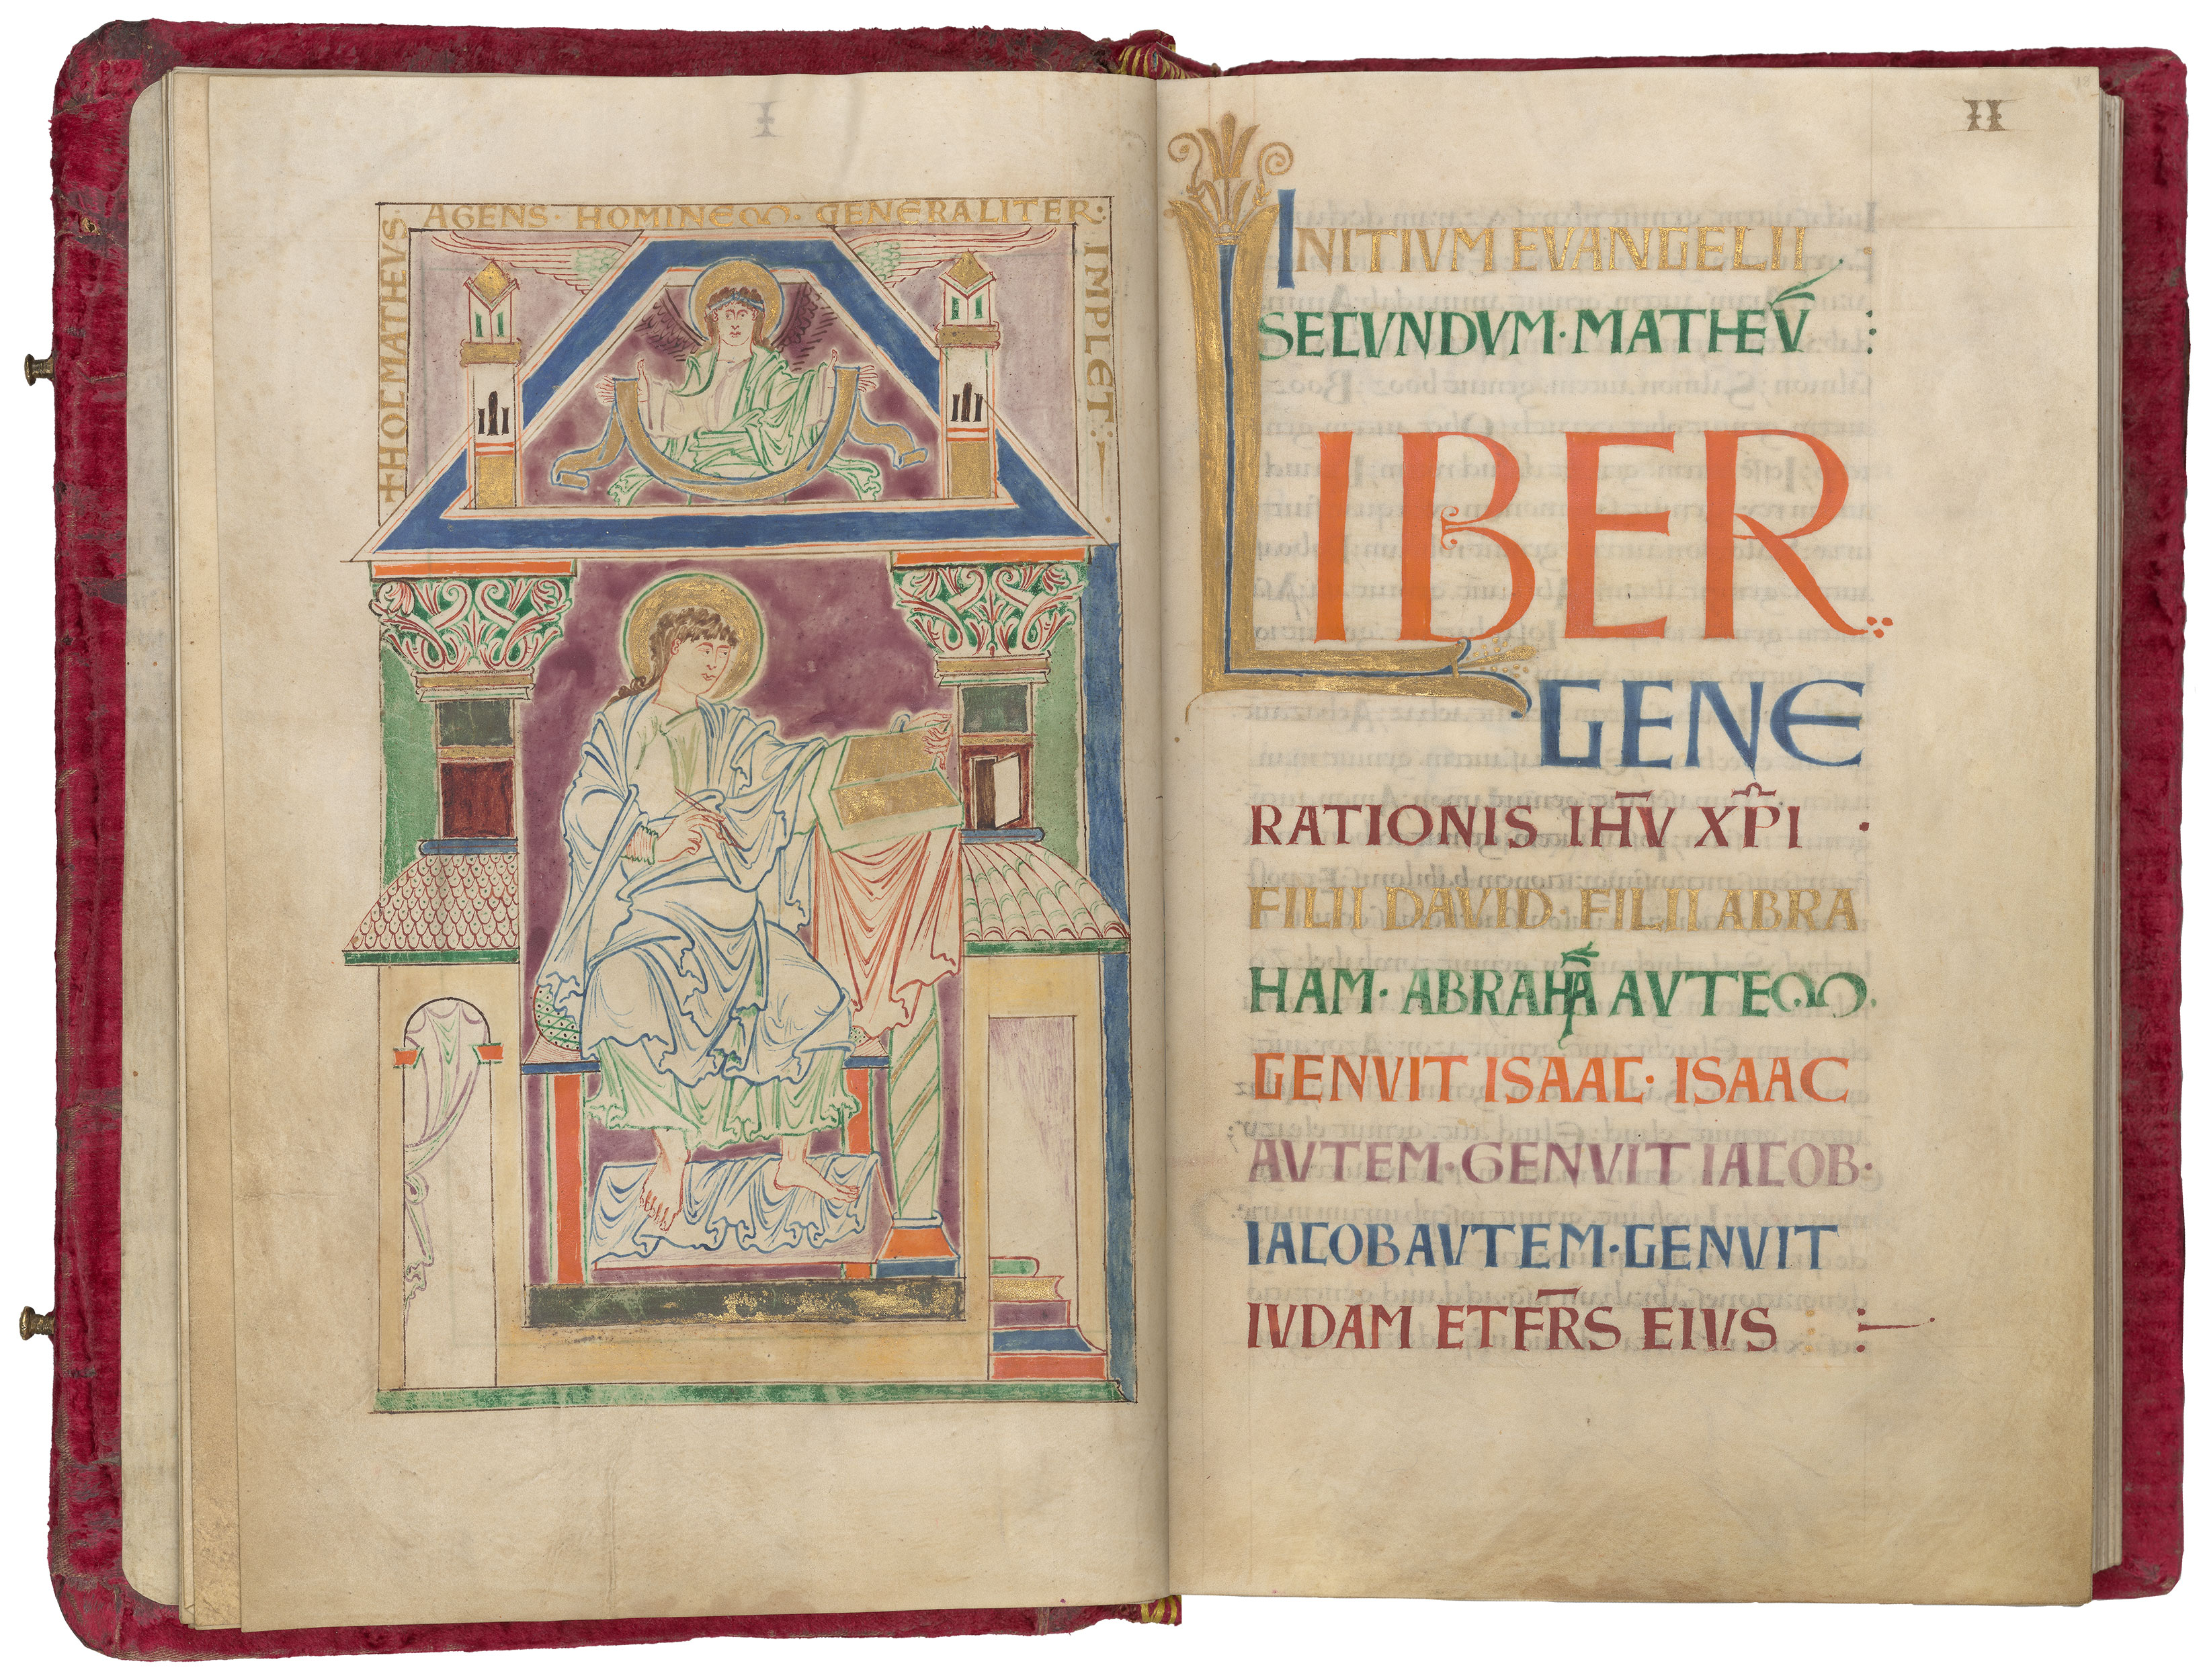 I
+HOC MATHEVS·
AGENS · HOMINEM · GENERALITER:
IMPLET:
II
INITIVM EVANGELII .
SECUNDVM · MATHEV̄ :
LIBER
GENE
RATIONIS IH̅V XP̅I .
FILII DAVID · FILII ABRA
HAM · ABRAHĀ AVTEM .
GENVIT ISAAC · ISAAC
AVTEM · GENVIT IACOB ·
IACOB AVTEM · GENVIT
IVDAM ET FR̅S EIVS :